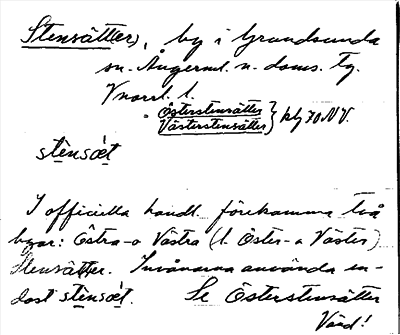 Stensätt(er), by i Grundsunda
sn. Ångerml. n. doms. tg.
Vnorrl. l.
Österstensätter
Västerstensätter } kbj 70 NV.
stènsæ̀t
I officiella handl. förekomma två
byar: Östra- o Västra (l. Öster- o Väster)
Stensätter. Invånarna använda en-
dast stènsæ̀t. Se Österstensätter
Vänd!